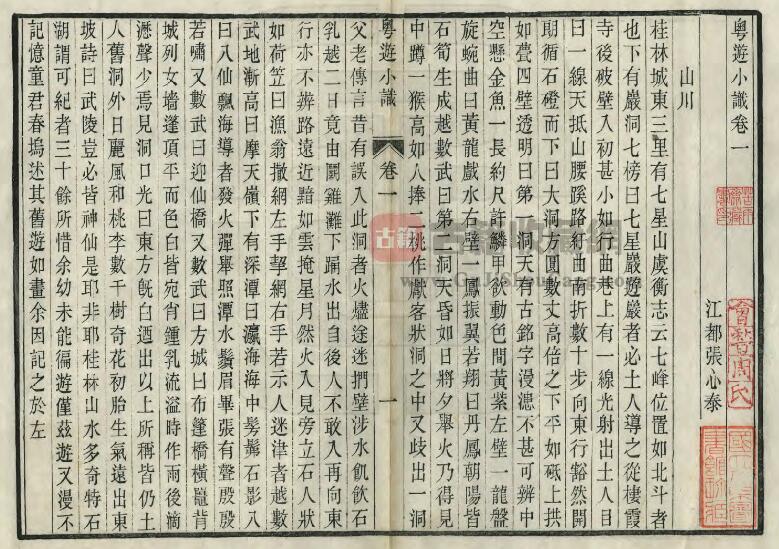 粵遊小識卷一
江都張心泰
山川
桂林城東三里有七星山虞衡志云七峰位置如北斗者
也下有巖洞七榜曰七星巖遊巖者必土人導之從棲霞
寺後破壁入初甚小如行曲巷上有一線光射出土人目
曰一線天抵山腰蹊路紆曲南折數十步向東行豁然開
朗循石磴而下曰大洞方圓數丈高倍之下平如砥上拱
如甍四壁透明曰第一洞天有古銘字漫漶不甚可辨中
空懸金魚一長約尺許鱗甲欲動色間黃紫左壁一龍盤
旋蜿曲曰黃龍戲水右壁二鳳振翼若翔曰丹鳳朝陽皆
石筍生成越數武曰第二洞天昏如日將夕舉火乃得見
中蹲一猴高如人捧二桃作獻客狀洞之中又歧出一洞
粵遊小識
卷一
一
父老傳言昔有誤入此洞者火燼途迷捫壁涉水飢飲石
乳越二日竟由鬬雞灘下踊水出自後人不敢入再向東
行亦不辨路遠近黯如雲掩星月然火入見旁立石人狀
如荷笠曰漁翁撒網左手挐網右手若示人迷津者越數
武地漸高曰摩天嶺下有深潭曰瀛海海中髣髴石影八
曰八仙飄海導者發火彈舉照潭水鬚眉畢張有聲殷殷
若嘯又數武曰迎仙橋又數武曰方城曰布篷橋橫嵐背
城列女牆蓬頂平而色白皆宛肖鍾乳流溢時作雨後滴
瀝聲少焉見洞口光曰東方旣白迺出以上所稱皆仍土
人舊洞外日麗風和桃李數千樹奇花初胎生氣遠出東
坡詩曰武陵豈必皆神仙是耶非耶桂林山水多奇特石
湖謂可紀者三十餘所惜余幼未能徧遊僅茲遊又漫不
記憶童君春塢述其舊遊如畫余因記之於左
古籍
古籍收藏網
國立北平圖書館珍藏